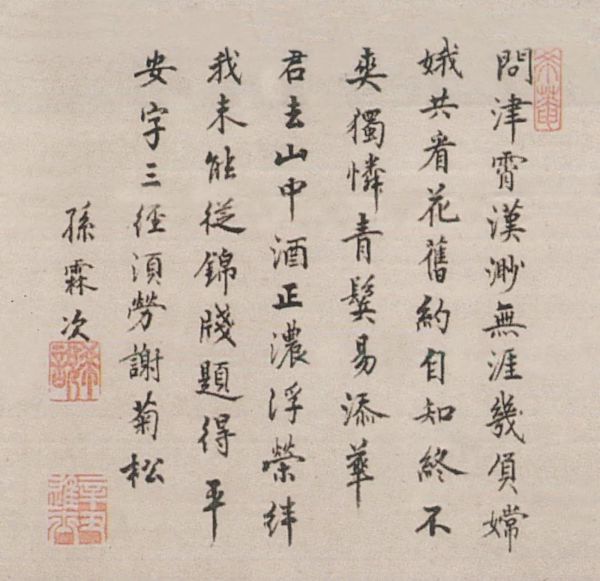 問津霄漢渺無涯幾負嫦
娥共看花舊約自知終不
爽獨憐青鬢易添華
君去山中酒正濃浮榮絆
我未能從錦牋題得平
安字三徑須勞謝菊松
孫霖次